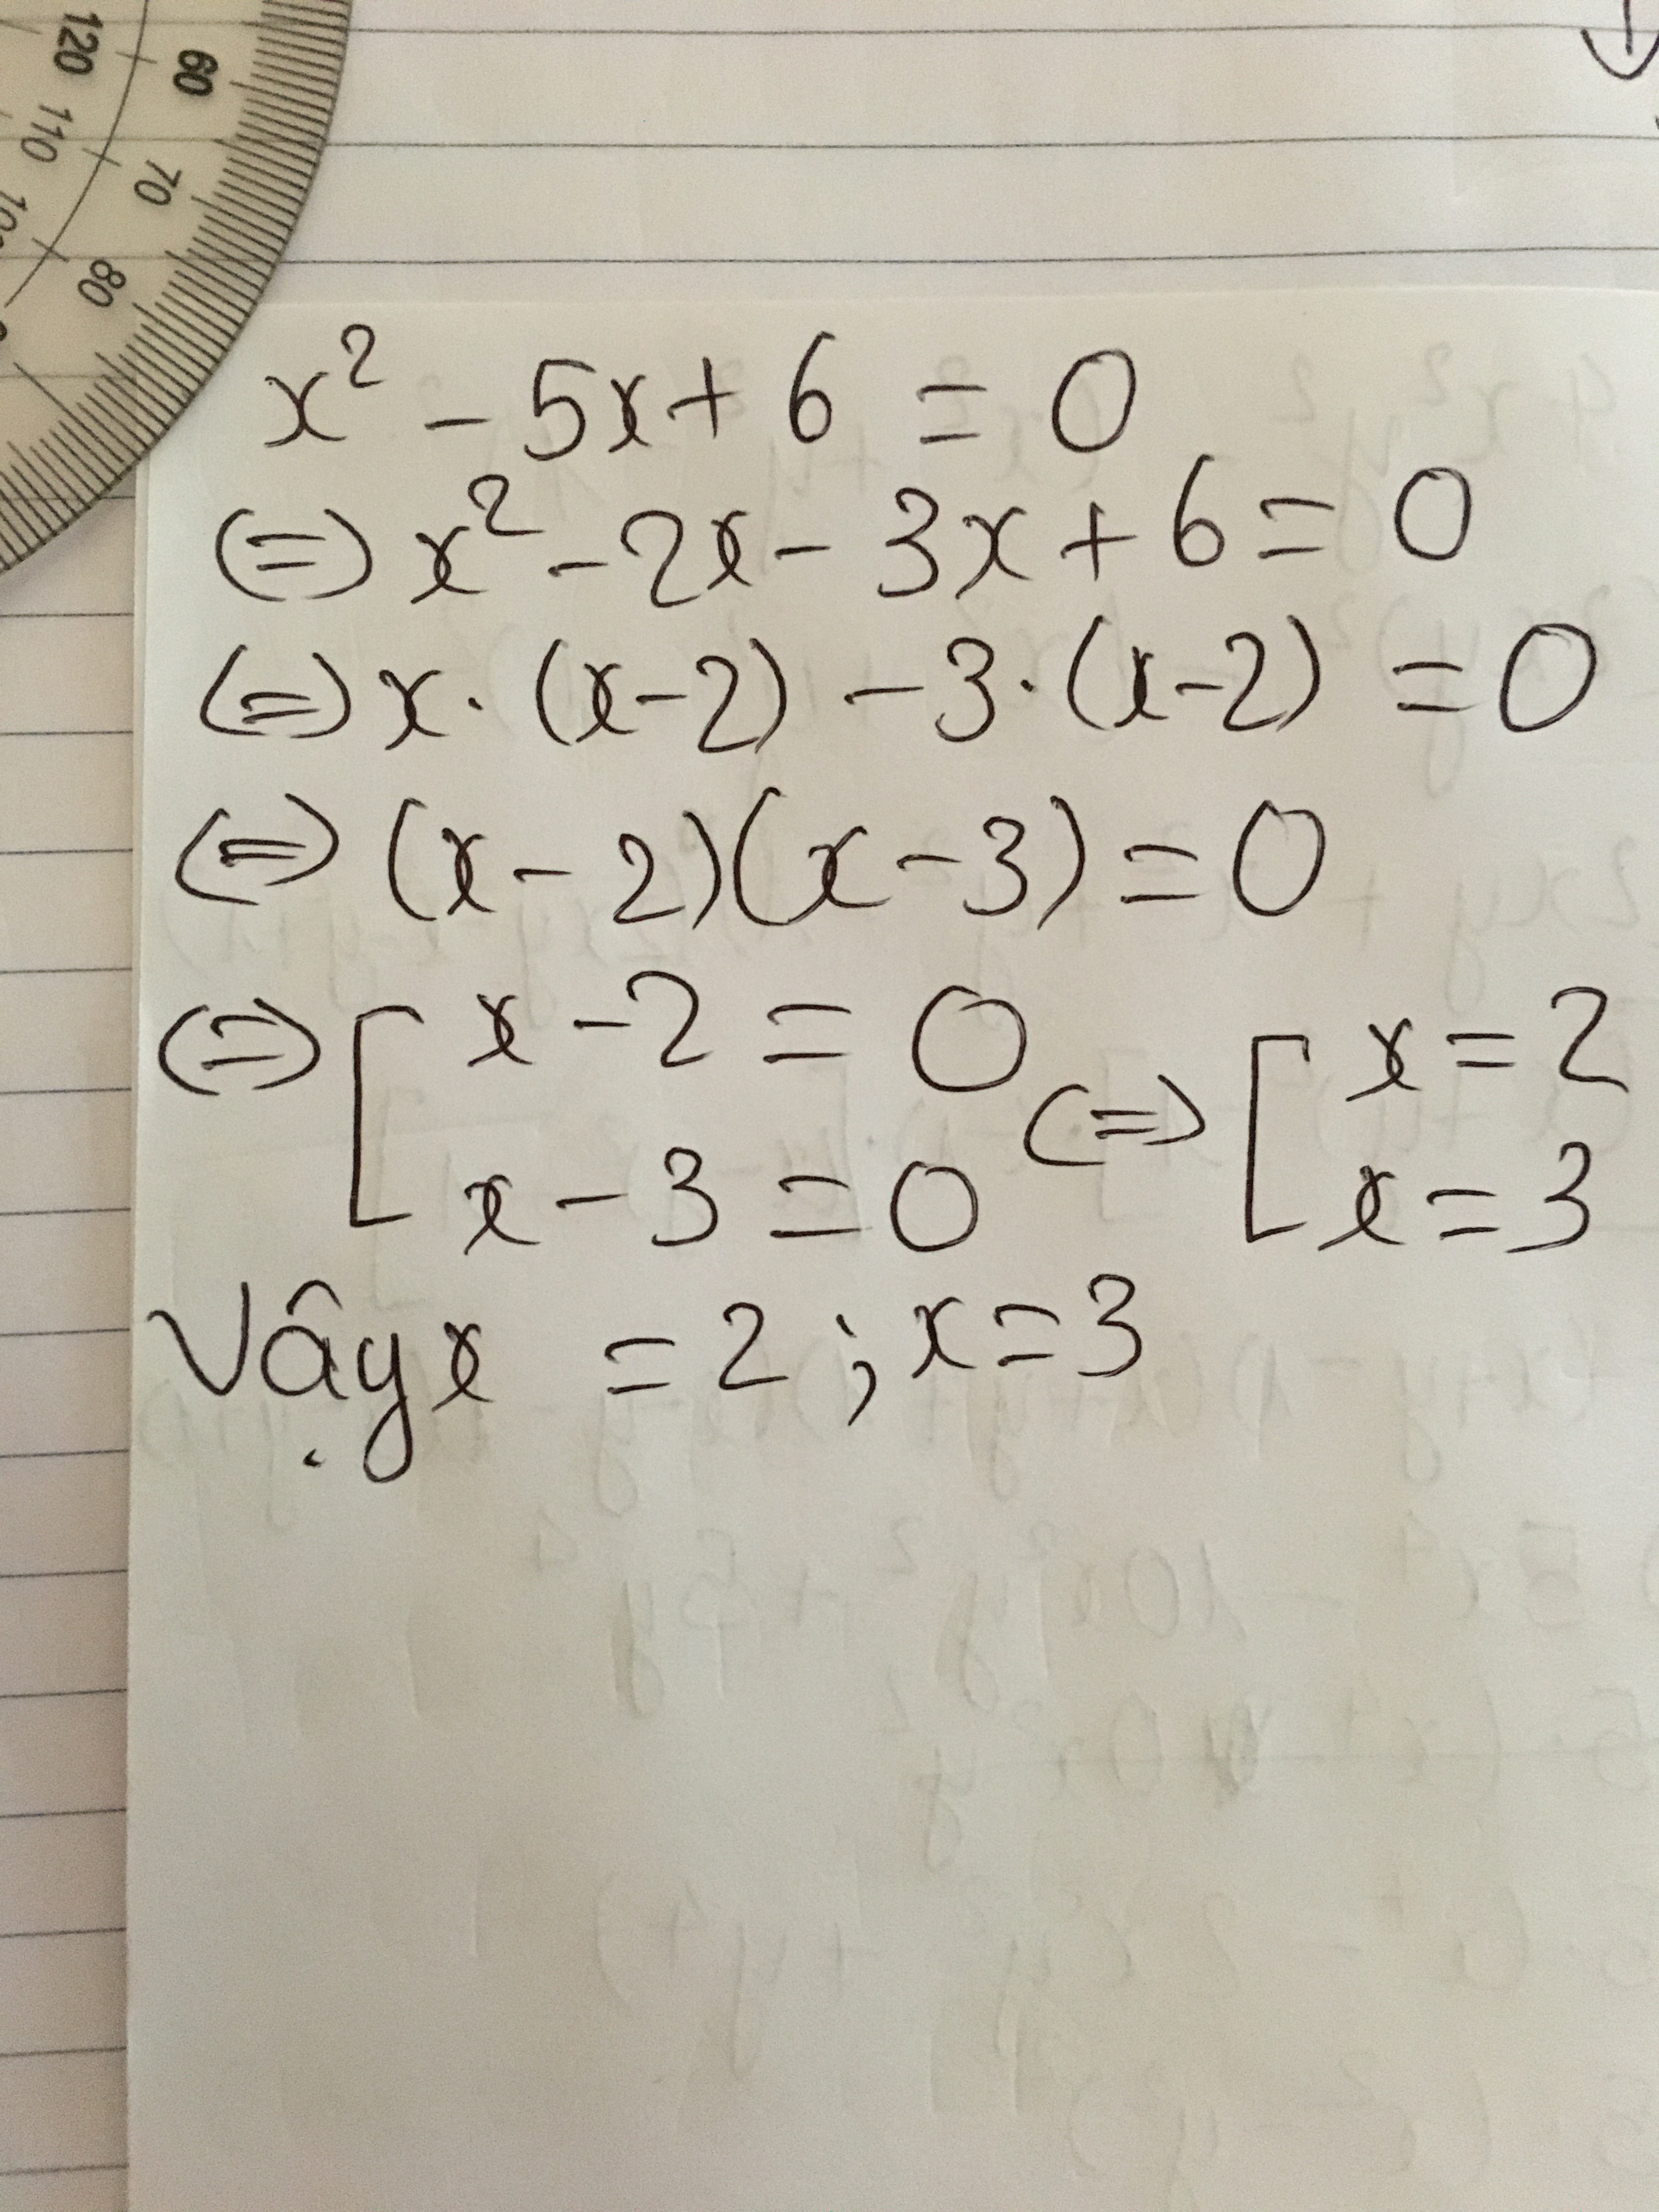 120 60
110 70
80
x² - 5x + 6 = 0
(=) x² - 2x - 3x + 6 = 0
(=) x. (x-2) - 3. (x-2) = 0
(=) (x - 2)(x - 3) = 0
(=) [ x - 2 = 0 (=) [ x = 2
x - 3 = 0 x = 3
Vậy x = 2 ; x = 3